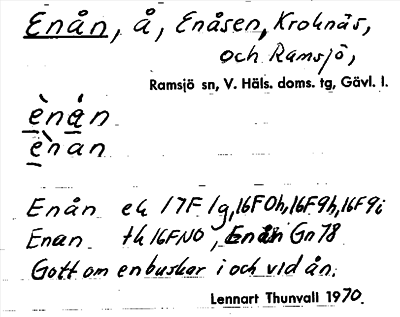 Enån, å, Enåsen, Kroknäs,
och Ramsjö,
Ramsjö sn, V. Häls. doms. tg, Gävl. l.
ènán
ènan
Enån ek 17F 1g, 16F 0h, 16F 9h, 16F 9i
Enan th 16FNO, Enån Gn78
Gott om enbuskar i och vid ån.
Lennart Thunvall 1970.